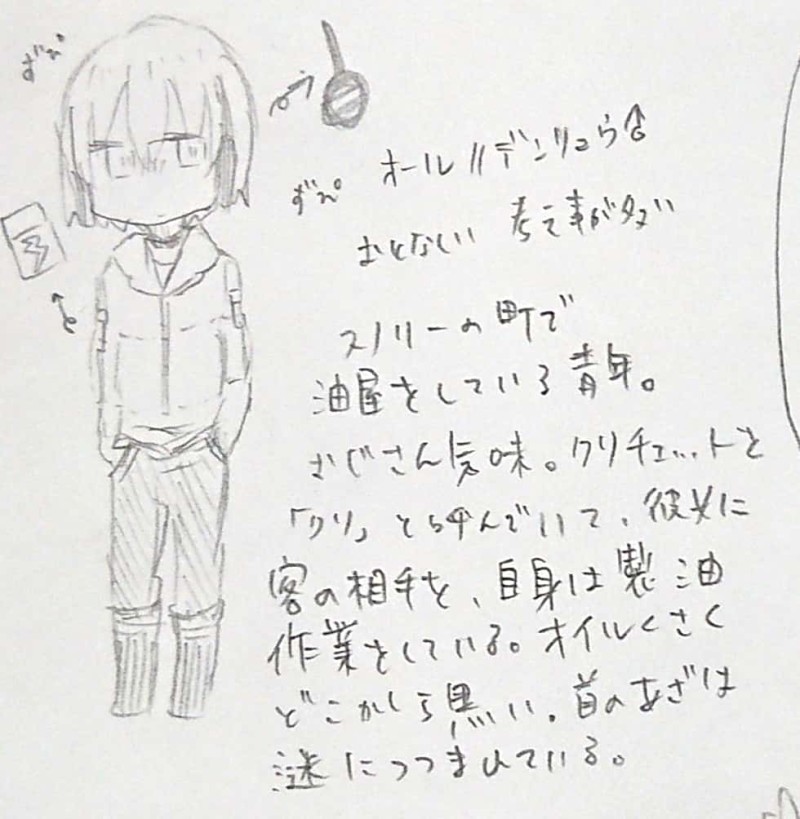 ずぺ
ずぺ
オール//デンリュウ♂
おとなしい 考え事が多い
スノリーの町で
油屋をしている青年。
おじさん気味。クリチェットを
「クリ」と呼んでいて、彼女に
客の相手を、自身は製油
作業をしている。オイルくさく
どこかしら黒い。首のあざは
謎につつまれている。